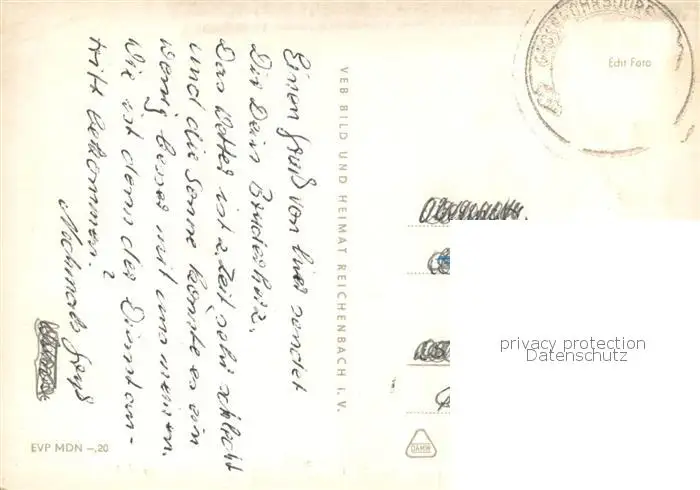 Einen Gruß von hier sendet
Dir Dein Bruderherz.
Das Wetter ist z. Zeit sehr schlecht
und die Sonne könnte es ein
wenig besser mit uns meinen.
Wie ist denn der Dienstan-
tritt bekommen?
Nochmals Gruß
VEB BILD UND HEIMAT REICHENBACH i. V.
EVP MDN –,20
GROSSRÖHRSDORF
Echt Foto
privacy protection
Datenschutz
DAMW